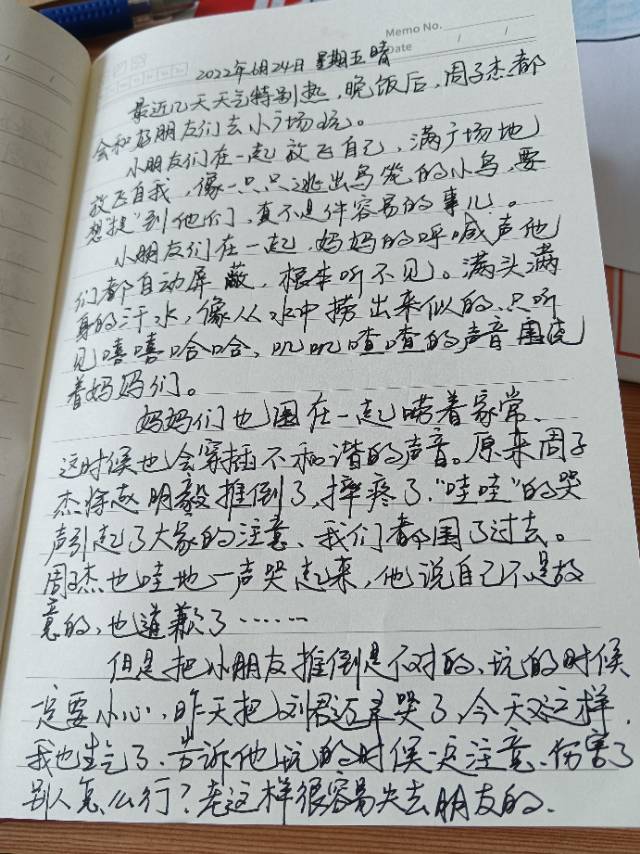 Memo No.
Date / /
2022年6月24日 星期五晴
最近几天天气特别热，晚饭后，周子杰都
会和好朋友们去小广场玩。
小朋友们在一起放飞自己，满广场地
放飞自我，像一只只逃出鸟笼的小鸟，要
想"捉"到他们，真不是件容易的事儿。
小朋友们在一起，妈妈的呼喊声他
们都自动屏蔽，根本听不见。满头满
身的汗水，像从水中捞出来似的，只听
见嘻嘻哈哈、叽叽喳喳的声音围绕
着妈妈们。
妈妈们也围在一起唠着家常，
这时候也会穿插不和谐的声音。原来周子
杰将赵明毅推倒了，摔疼了，"哇哇"的哭
声引起了大家的注意、我们都围了过去。
周子杰也哇地一声哭起来，他说自己不是故
意的，也道歉了……
但是把小朋友推倒是不对的、玩的时候
一定要小心，昨天把刘君还弄哭了，今天又这样，
我也生气了、告诉他玩的时候一定注意、伤害了
别人怎么行？老这样很容易失去朋友的.